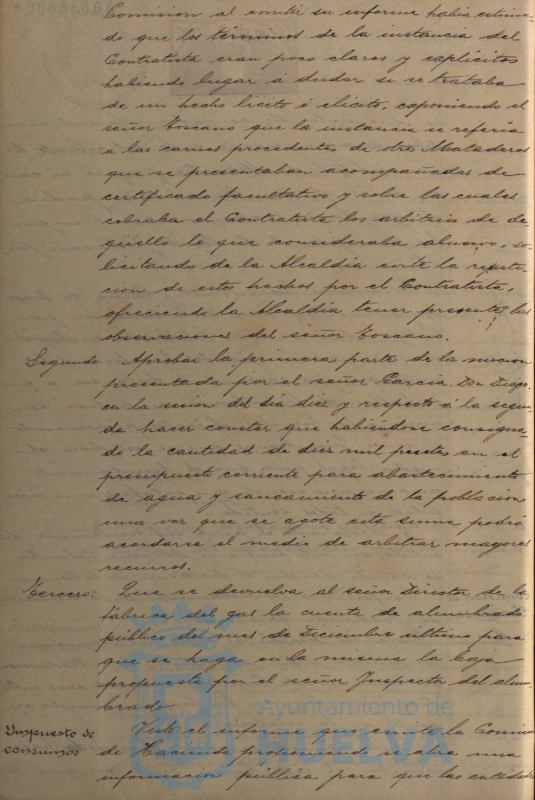 Comision al emitir su informe había estima-
do que los términos de la instancia del
Contratista eran poco claros y explícitos
habiendo lugar á dudar si se trataba
de un hecho licito ó ilicito, exponiendo el
señor Toscano que la instancia se referia
á las carnes procedentes de otros Mataderos
que se presentaban acompañadas de
certificado facultativo y sobre las cuales
cobraba el Contratista los arbitrios de de-
güello lo que consideraba abusivo, so-
licitando de la Alcaldia evite la repeti-
cion de estos hechos por el Contratista,
ofreciendo la Alcaldia tener presentes las
observaciones del señor Toscano.
Segundo Aprobar la primera parte de la mocion
presentada por el señor Garcia Don Diego
en la sesion del dia diez y respecto á la segun-
da hacer constar que habiéndose consigna-
do la cantidad de diez mil pesetas en el
presupuesto corriente para abastecimiento
de agua y saneamiento de la poblacion
una vez que se agote esta suma podrá
acordarse el medio de arbitrar mayores
recursos.
Tercero: Que se devuelva al señor Director de la
fábrica del gas la cuenta de alumbrado
público del mes de Diciembre último para
que se haga en la misma la baja
propuesta por el señor Inspector del alum-
brado.
Ayuntamiento de
HUELVA
Impuesto de
consumos
Visto el informe que emite la Comision
de Hacienda proponiendo se abra una
informacion pública para que las entidades